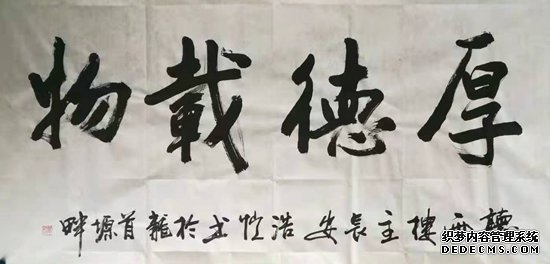 厚德載物
聽雨樓主長安浩书於龍首塬畔
织梦内容管理系统
DEDECMS.COM